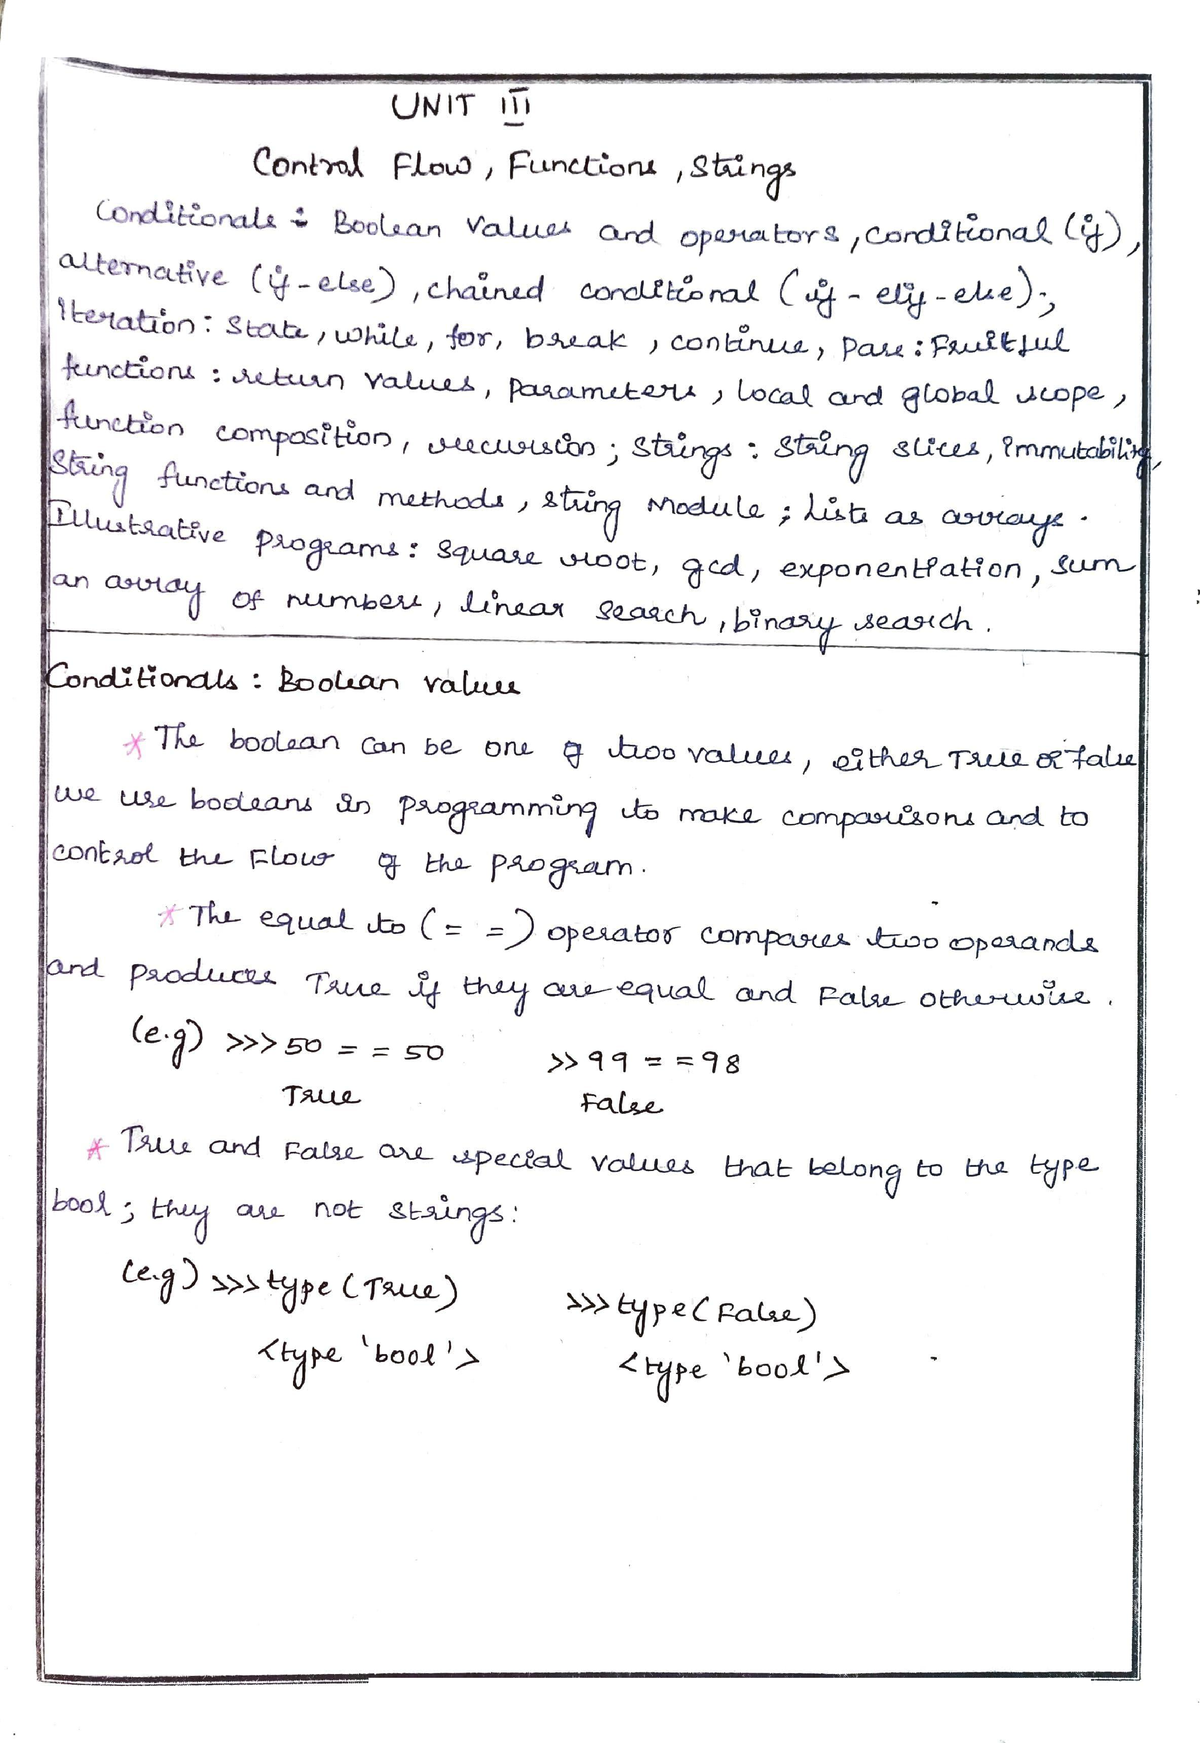 UNIT III
Control Flow, Functions, Strings
Conditionals: Boolean Values and operators, conditional (if),
alternative (if-else), chained conditional (if-elif-else);
Iteration: State, while, for, break, continue, pass: Fruitful
functions: return values, parameters, local and global scope,
function composition, recursion; Strings: String slices, immutability,
String functions and methods, string Module; Lists as arrays.
Illustrative programs: square root, gcd, exponentiation, sum
an array of numbers, linear search, binary search.
Conditionals: Boolean values
* The boolean can be one of two values, either True or False
we use booleans in programming to make comparisons and to
control the Flow of the program.
* The equal to (= =) operator compares two operands
and produces True if they are equal and False otherwise.
(e.g) >>> 50 = = 50 >> 99 = = 98
True False
* True and False are special values that belong to the type
bool; they are not strings:
(e.g) >>> type (True) >>> type (False)
<type 'bool'> <type 'bool'>